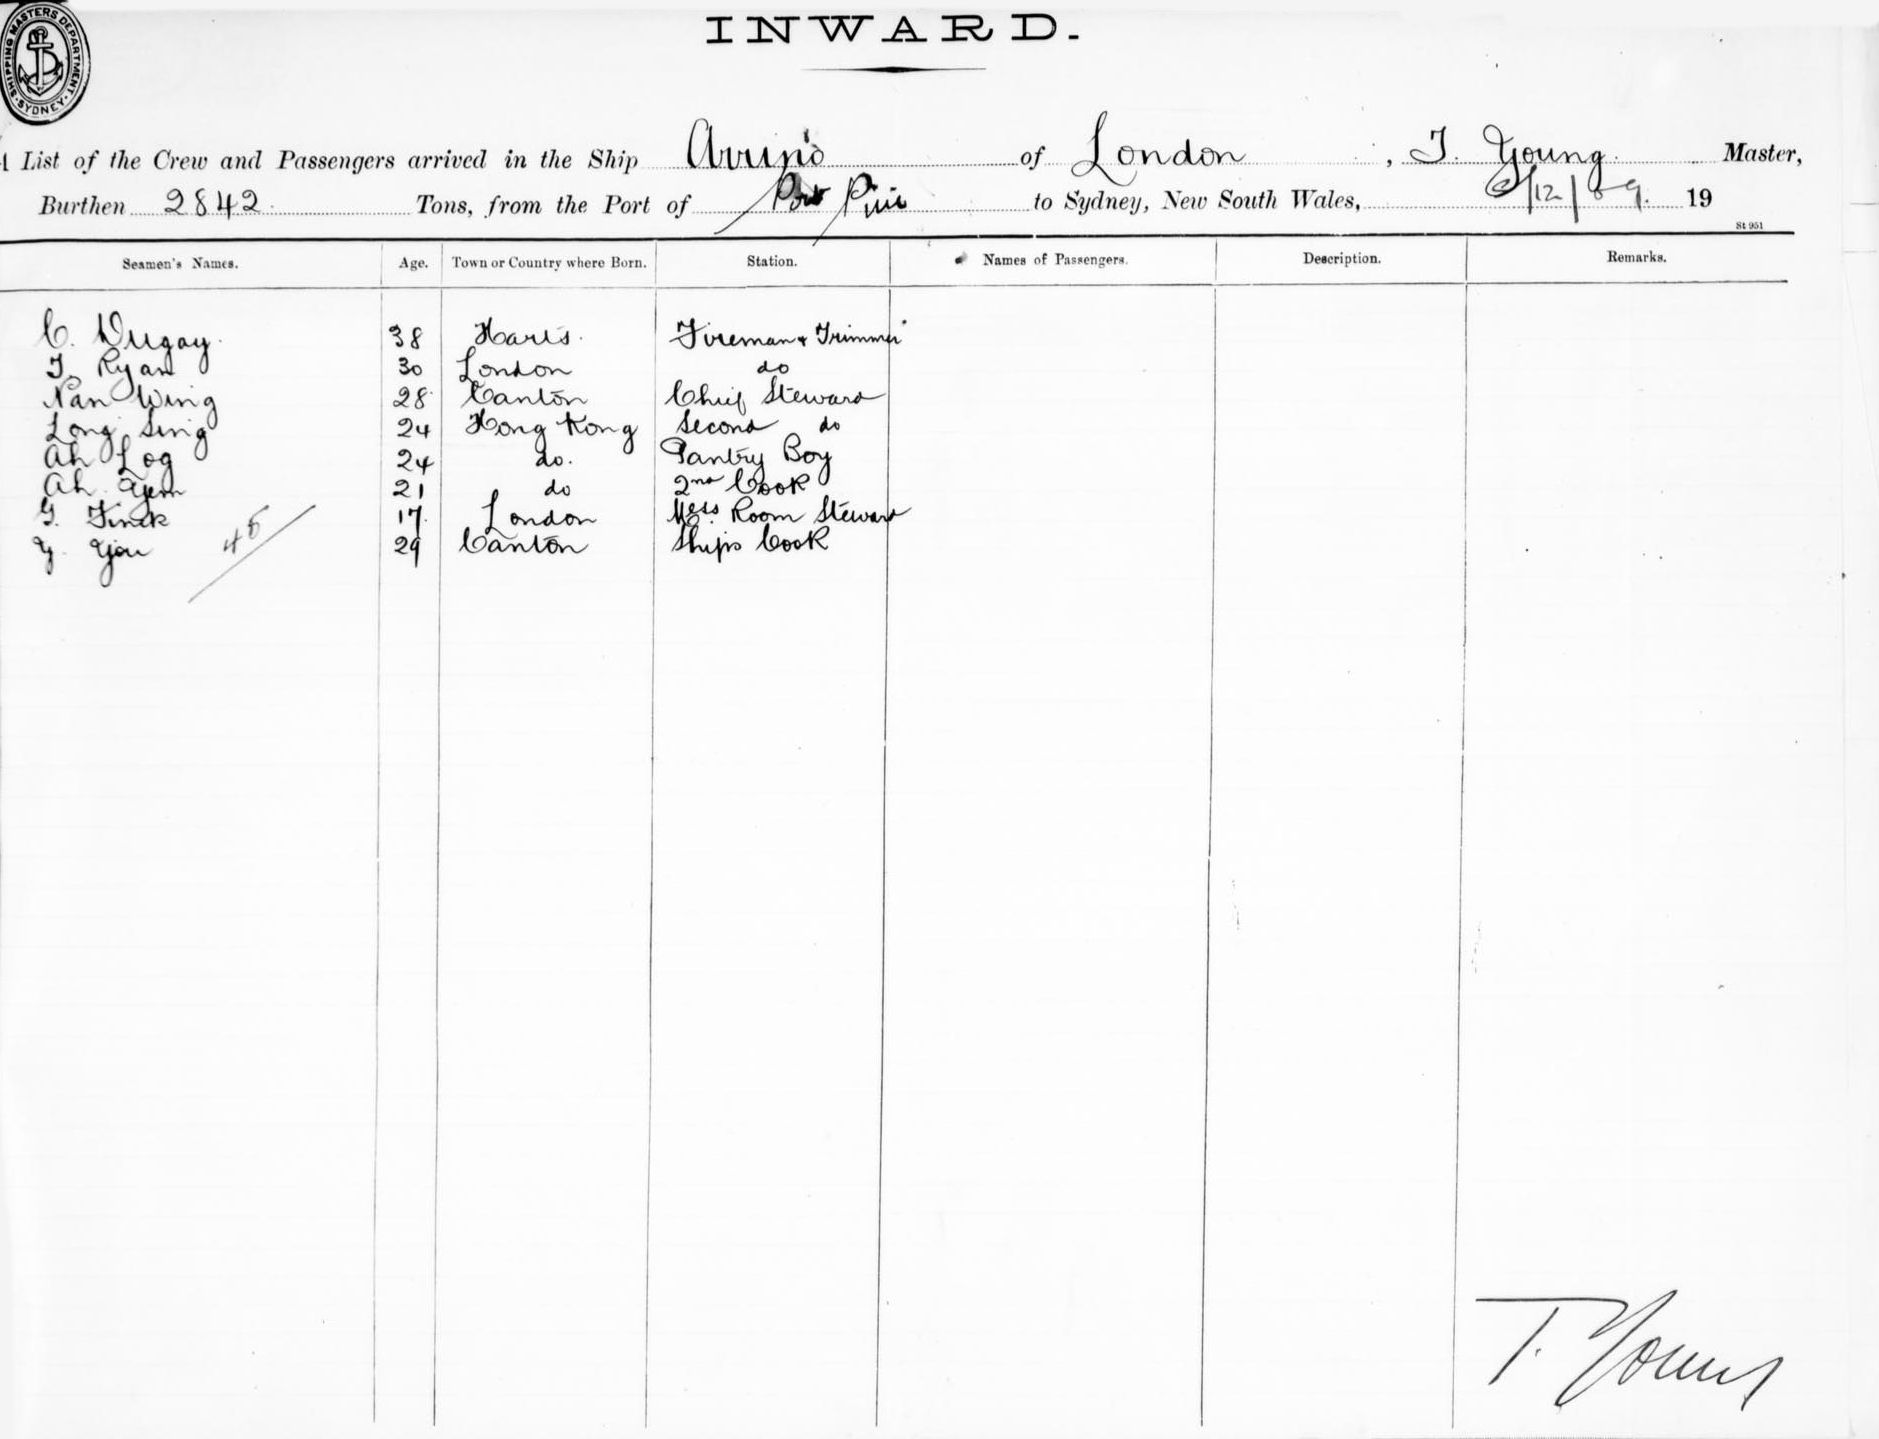 SHIPPING MASTERS DEPARTMENT · SYDNEY ·
INWARD.
A List of the Crew and Passengers arrived in the Ship Arrino of London, T. Young Master,
Burthen 2842 Tons, from the Port of Port Pirie to Sydney, New South Wales, 6/12/09. 19
St 951
Seamen's Names. Age. Town or Country where Born. Station. Names of Passengers. Description. Remarks.
C. 38 Fireman & Trimmer
T. Ryan 30 London do
Nan Wing 28 Canton Chief Steward
Long Sing 24 Hong Kong Second do
Ah Log 24 do. Pantry Boy
Ah 21 do 2nd Cook
Finck 17. London Mess Room Steward
Y. 29 Canton Ships Cook
45
T. Young